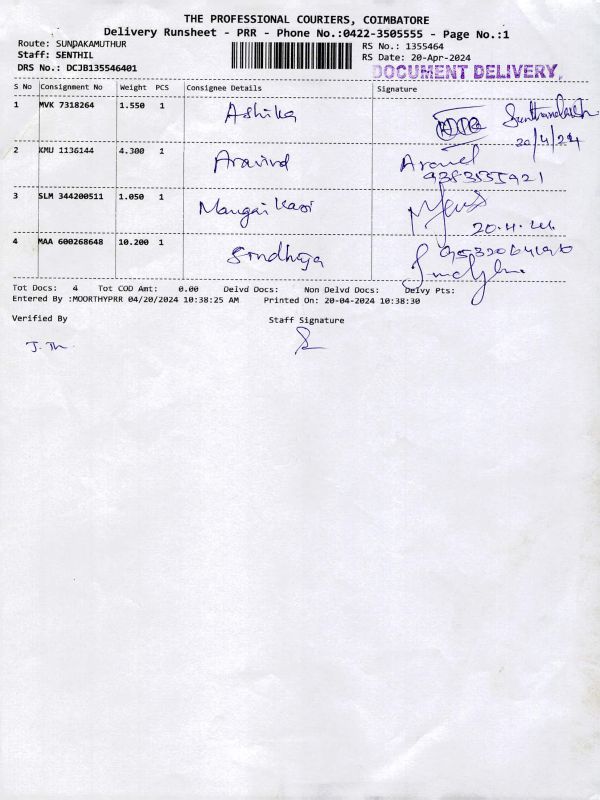 THE PROFESSIONAL COURIERS, COIMBATORE
Delivery Runsheet - PRR - Phone No.:0422-3505555 - Page No.:1
Route: SUNDAKAMUTHUR
Staff: SENTHIL
DRS No.: DCJB135546401
RS No.: 1355464
RS Date: 20-Apr-2024
DOCUMENT DELIVERY,
S No Consignment No Weight PCS Consignee Details Signature
1 MVK 7318264 1.550 1 Ashika
20/4/24
2 KMU 1136144 4.300 1 Aravind
9383555921
3 SLM 344200511 1.050 1 Mangai Kaoi
20.4.24
4 MAA 600268648 10.200 1 Sindhuja
Tot Docs: 4 Tot COD Amt: 0.00 Delvd Docs: Non Delvd Docs: Delvy Pts:
Entered By :MOORTHYPRR 04/20/2024 10:38:25 AM Printed On: 20-04-2024 10:38:30
Verified By Staff Signature